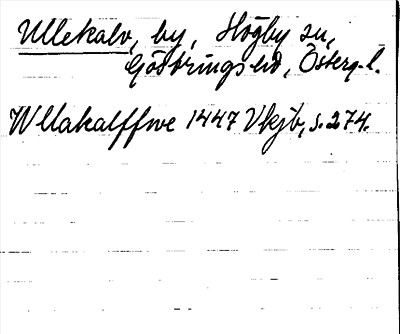 Ullekalv, by, Högby sn,
Göstrings hd, Österg. l.
Wllakalffwe 1447 Vkjb, s. 274.